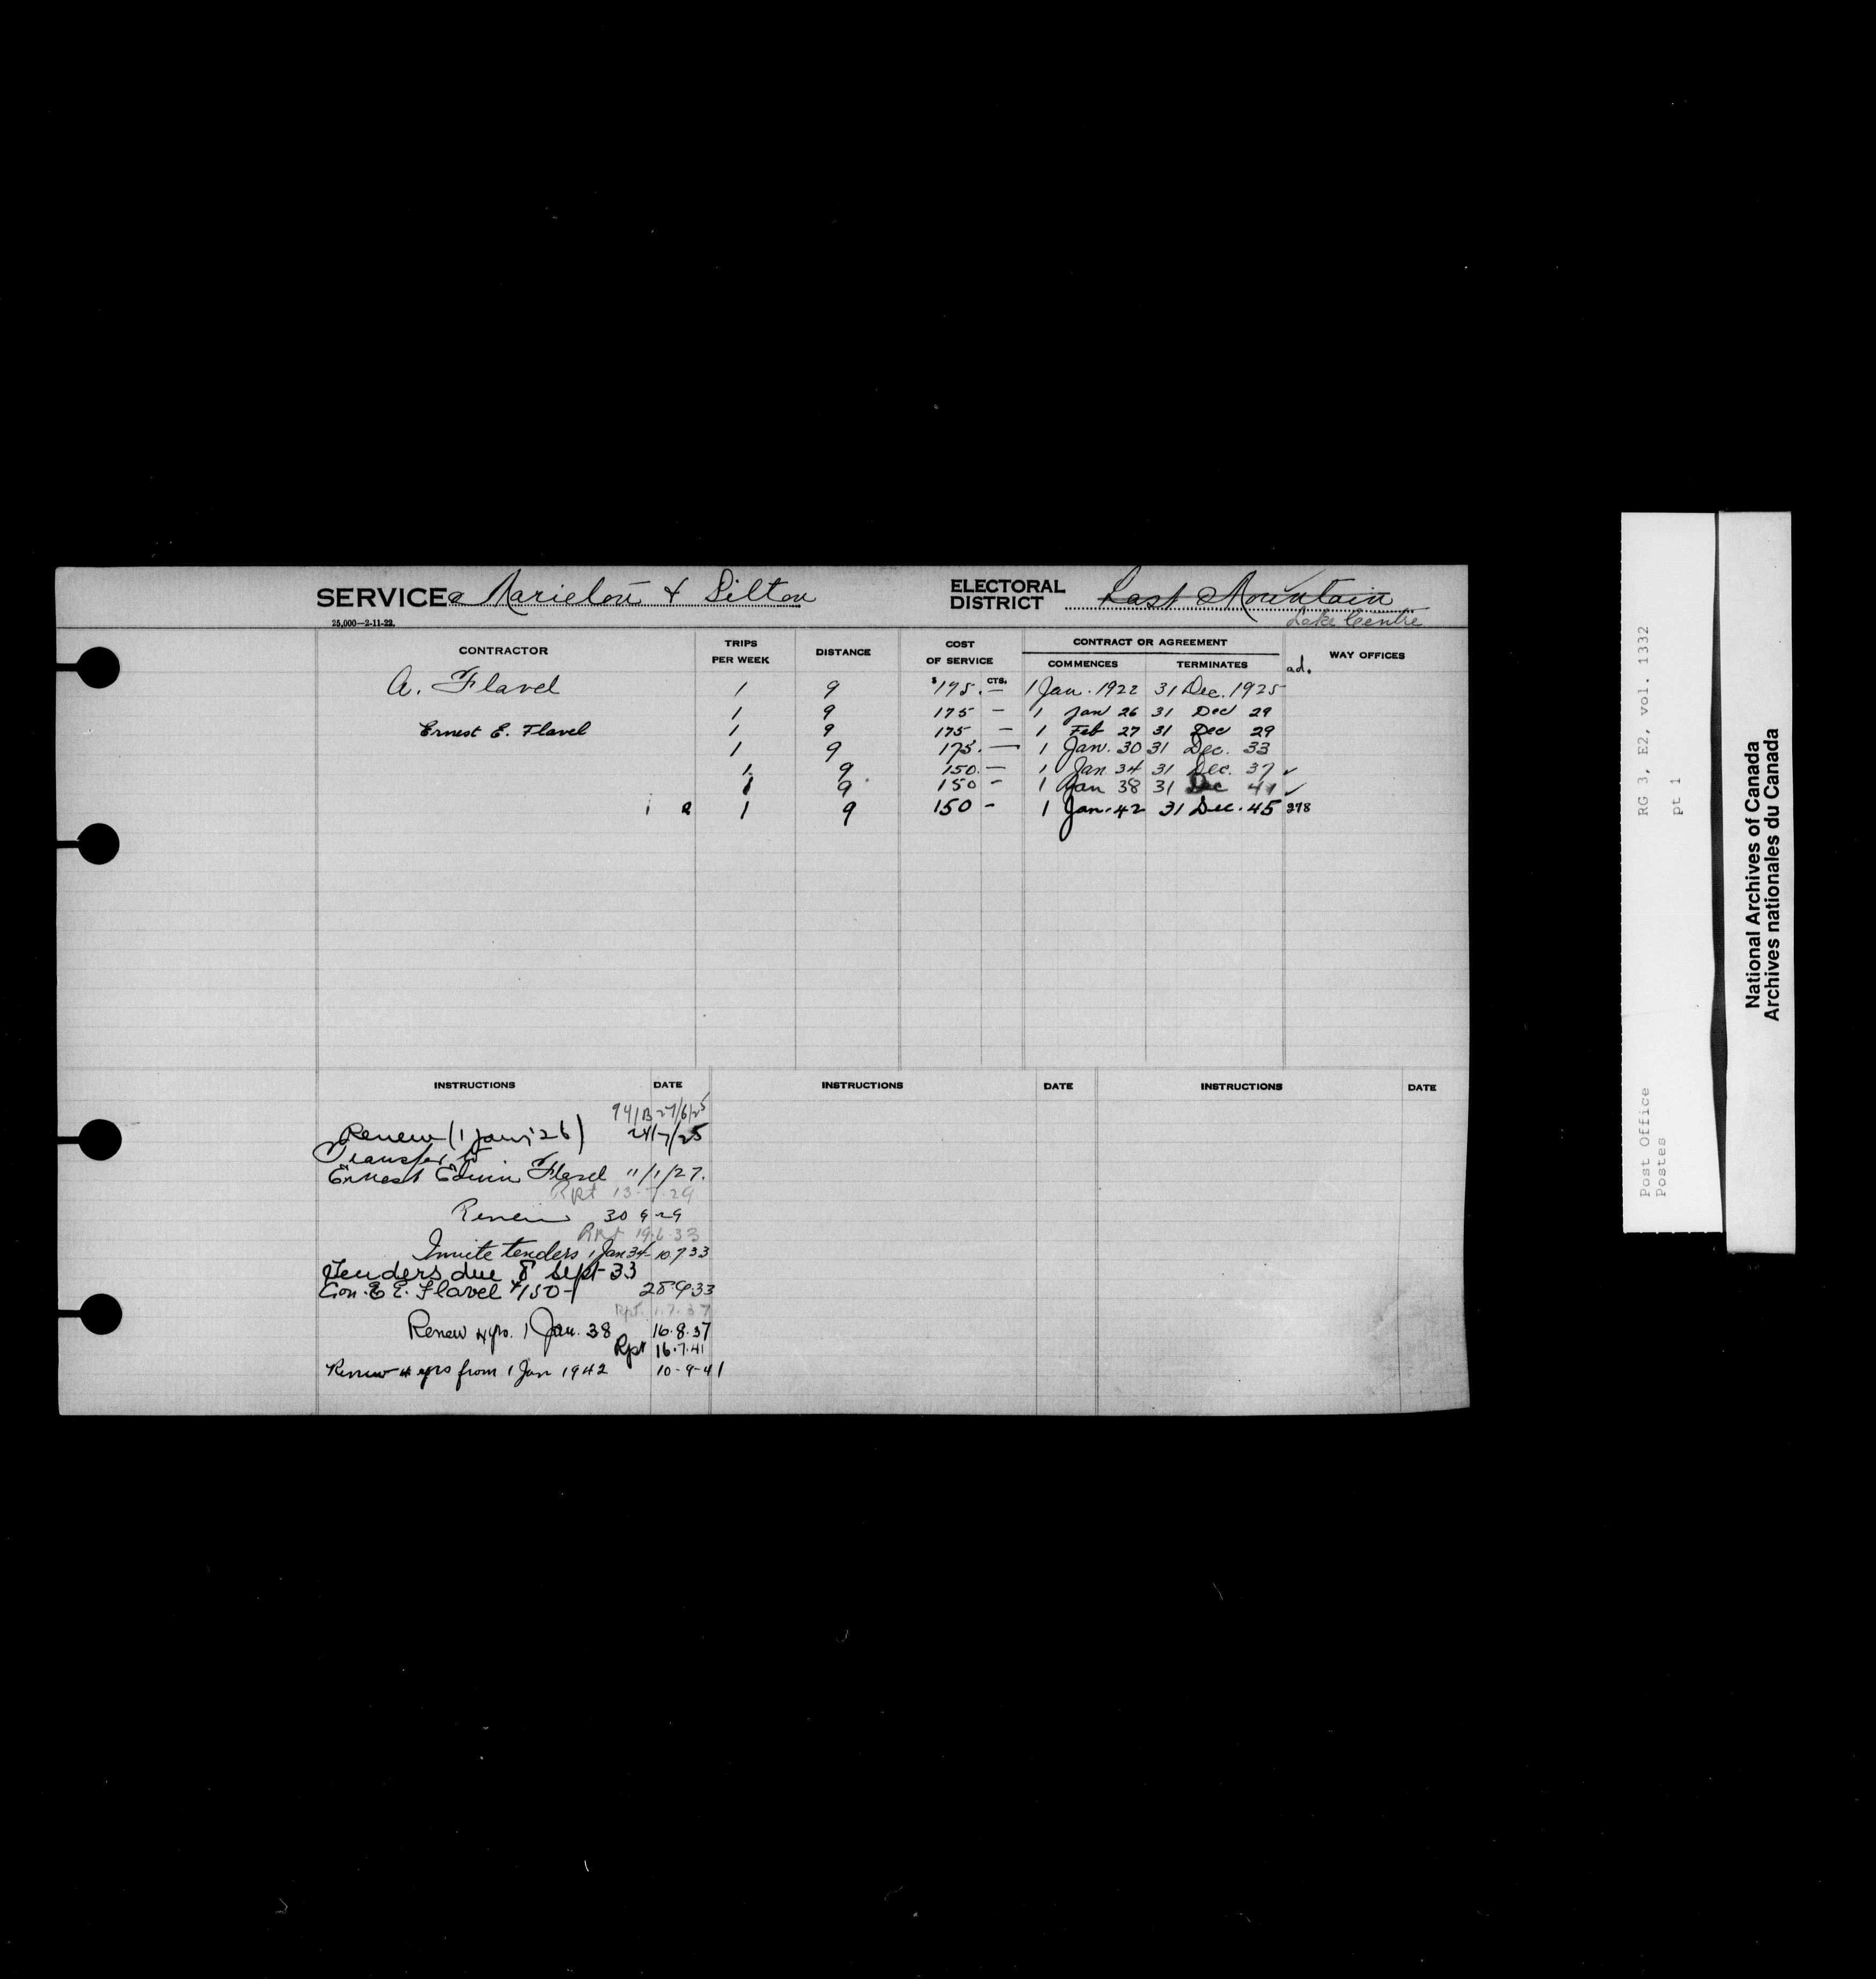 SERVICE Marieton & Silton
ELECTORAL DISTRICT Last Mountain
Lake Centre
25,000—2-11-22.
CONTRACTOR TRIPS PER WEEK DISTANCE COST OF SERVICE CONTRACT OR AGREEMENT WAY OFFICES
COMMENCES TERMINATES ad.
$ CTS.
A. Flavel 1 9 175. — 1 Jan. 1922 31 Dec. 1925
1 9 175 — 1 Jan 26 31 Dec 29
Ernest E. Flavel 1 9 175 — 1 Feb 27 31 Dec 29
1 9 175. — 1 Jan. 30 31 Dec. 33
1 9 150. — 1 Jan 34 31 Dec. 37 ✓
1 9 150 - 1 Jan 38 31 Dec 41 ✓
1 9 150 - 1 Jan. 42 31 Dec. 45 278
INSTRUCTIONS DATE INSTRUCTIONS DATE INSTRUCTIONS DATE
94/B 27/6/25
Renew (1 Jan, '26) 24/7/25
Transfer to
Ernest Edwin Flavel 11/1/27.
Rpt 13-7-29
Renew 30 9 29
Rpt 19.6.33
Invite tenders 1 Jan 34 10.7.33
Tenders due 8 Sept-33
Con. E E. Flavel $150- 28.9.33
Rpt. 1.7.37
Renew 4 yrs. 1 Jan. 38 16.8.37
Rpt 16.7.41
Renew 4 yrs from 1 Jan 1942 10-9-41
RG 3, E2, vol. 1332
pt 1
Post Office
Postes
National Archives of Canada
Archives nationales du Canada